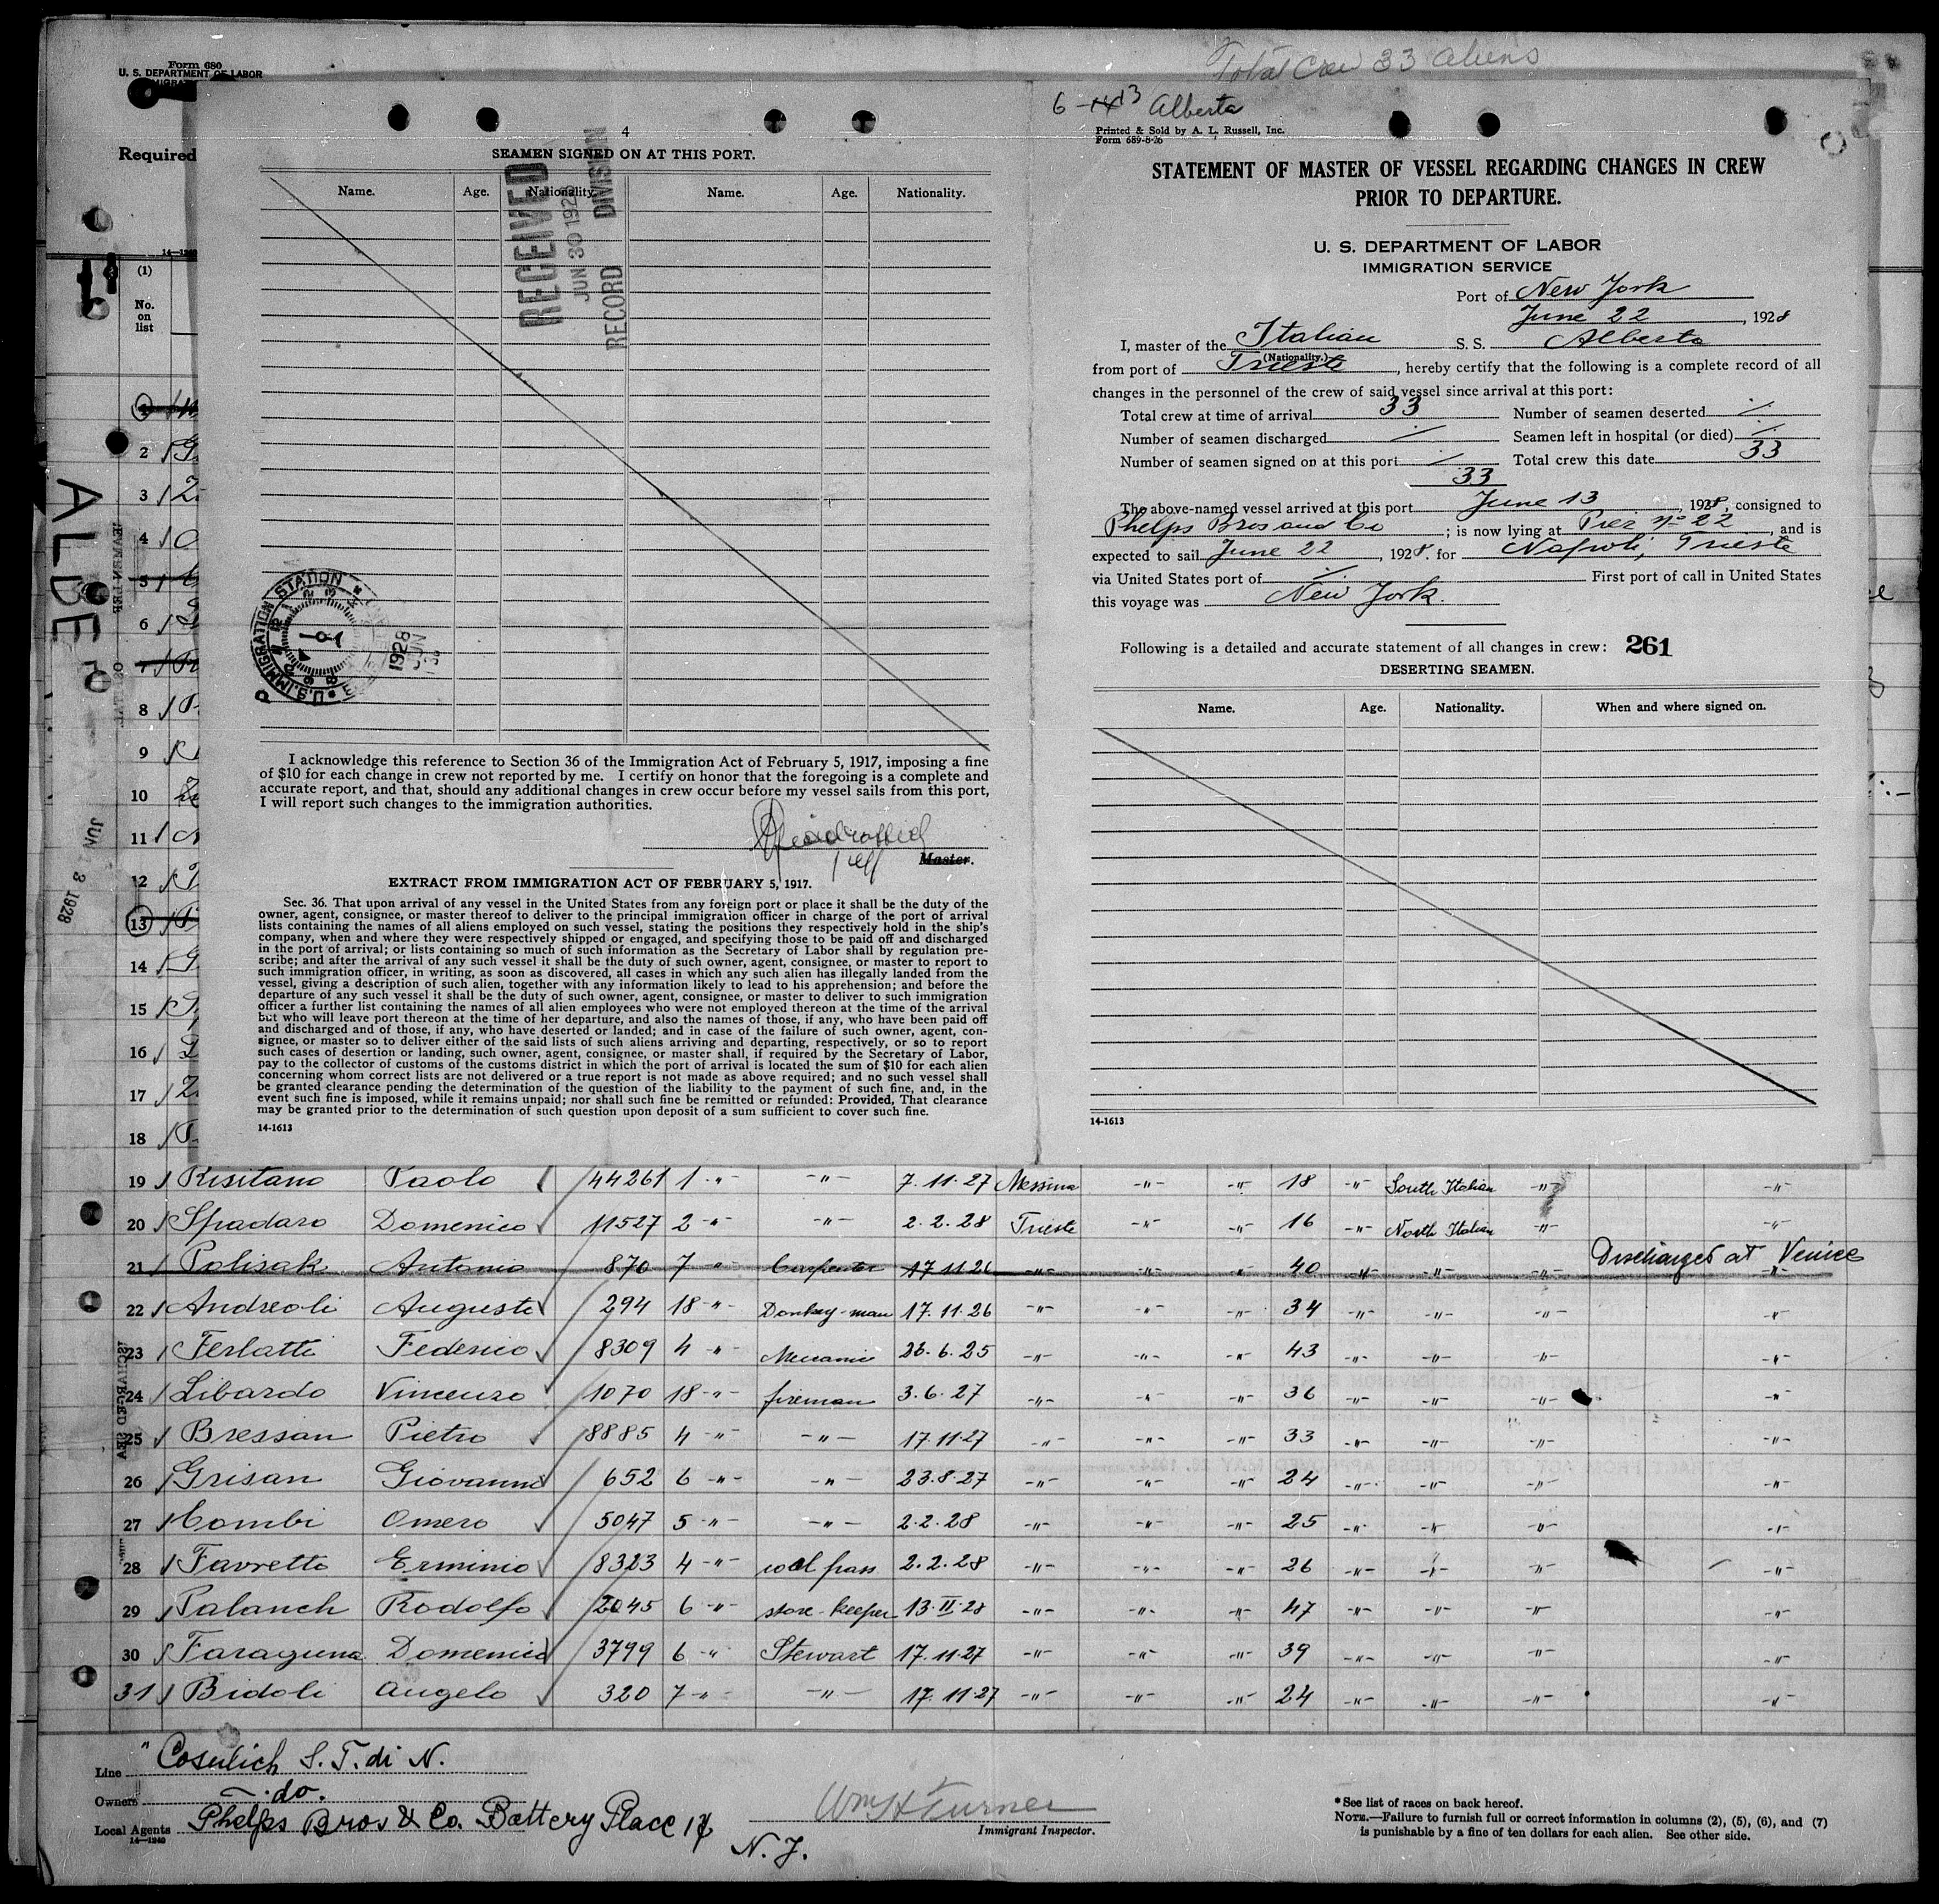 Total Crew 33 aliens
Form 680
U. S. DEPARTMENT OF LABOR
Required
6-13 Alberta
Printed & Sold by A. L. Russell, Inc.
Form 689-8-26
4
SEAMEN SIGNED ON AT THIS PORT.
Name. Age. Nationality. Name. Age. Nationality.
RECEIVED
JUN 30 1928
RECORD DIVISION
I acknowledge this reference to Section 36 of the Immigration Act of February 5, 1917, imposing a fine
of $10 for each change in crew not reported by me. I certify on honor that the foregoing is a complete and
accurate report, and that, should any additional changes in crew occur before my vessel sails from this port,
I will report such changes to the immigration authorities.
Master.
EXTRACT FROM IMMIGRATION ACT OF FEBRUARY 5, 1917.
Sec. 36. That upon arrival of any vessel in the United States from any foreign port or place it shall be the duty of the
owner, agent, consignee, or master thereof to deliver to the principal immigration officer in charge of the port of arrival
lists containing the names of all aliens employed on such vessel, stating the positions they respectively hold in the ship's
company, when and where they were respectively shipped or engaged, and specifying those to be paid off and discharged
in the port of arrival; or lists containing so much of such information as the Secretary of Labor shall by regulation pre-
scribe; and after the arrival of any such vessel it shall be the duty of such owner, agent, consignee, or master to report to
such immigration officer, in writing, as soon as discovered, all cases in which any such alien has illegally landed from the
vessel, giving a description of such alien, together with any information likely to lead to his apprehension; and before the
departure of any such vessel it shall be the duty of such owner, agent, consignee, or master to deliver to such immigration
officer a further list containing the names of all alien employees who were not employed thereon at the time of the arrival
but who will leave port thereon at the time of her departure, and also the names of those, if any, who have been paid off
and discharged and of those, if any, who have deserted or landed; and in case of the failure of such owner, agent, con-
signee, or master so to deliver either of the said lists of such aliens arriving and departing, respectively, or so to report
such cases of desertion or landing, such owner, agent, consignee, or master shall, if required by the Secretary of Labor,
pay to the collector of customs of the customs district in which the port of arrival is located the sum of $10 for each alien
concerning whom correct lists are not delivered or a true report is not made as above required; and no such vessel shall
be granted clearance pending the determination of the question of the liability to the payment of such fine, and, in the
event such fine is imposed, while it remains unpaid; nor shall such fine be remitted or refunded: Provided, That clearance
may be granted prior to the determination of such question upon deposit of a sum sufficient to cover such fine.
14-1613
STATEMENT OF MASTER OF VESSEL REGARDING CHANGES IN CREW
PRIOR TO DEPARTURE.
U. S. DEPARTMENT OF LABOR
IMMIGRATION SERVICE
Port of New York
June 22, 1928
I, master of the Italian S. S. Alberta
(Nationality.)
from port of Trieste, hereby certify that the following is a complete record of all
changes in the personnel of the crew of said vessel since arrival at this port:
Total crew at time of arrival 33 Number of seamen deserted /
Number of seamen discharged / Seamen left in hospital (or died) /
Number of seamen signed on at this port / Total crew this date 33
33
The above-named vessel arrived at this port June 13, 1928, consigned to
Phelps Bros and Co; is now lying at Pier No 22, and is
expected to sail June 22, 1928. for Napoli, Trieste
via United States port of / First port of call in United States
this voyage was New York.
Following is a detailed and accurate statement of all changes in crew: 261
DESERTING SEAMEN.
Name. Age. Nationality. When and where signed on.
14-1613
(1)
No.
on
list
1
2
3
4
5
6
7
8
9
10
11
12
13
14
15
16
17
18
19 Risitano Paolo 44261 1 -"- -"- 7.11.27 Messina -"- -"- 18 -"- South Italian -"- -"-
20 Spadaro Domenico 11527 2 -"- -"- 2.2.28 Trieste -"- -"- 16 -"- North Italian -"- -"-
21 Polisak Antonio 870 7 -"- Carpenter 17 11 26 -"- -"- -"- 40 -"- -"- -"- Discharged at Venice -"-
22 Andreoli Augusto 294 18 -"- Donkey-man 17.11.26 -"- -"- -"- 34 -"- -"- -"- -"-
23 Ferlatti Federico 8309 4 -"- Meccanic 26.6.25 -"- -"- -"- 43 -"- -"- -"- -"-
24 Libardo Vincenzo 1070 18 -"- fireman 3.6.27 -"- -"- -"- 36 -"- -"- -"- -"-
25 Bressan Pietro 8885 4 -"- -"- 17.11.27 -"- -"- -"- 33 -"- -"- -"- -"-
26 Grisan Giovanni 652 6 -"- -"- 23.8.27 -"- -"- -"- 24 -"- -"- -"- -"-
27 Combi Omero 5047 5 -"- -"- 2.2.28 -"- -"- -"- 25 -"- -"- -"- -"-
28 Favretto Erminio 8323 4 -"- coal pass 2.2.28 -"- -"- -"- 26 -"- -"- -"- -"-
29 Palanch Rodolfo 2045 6 -"- store-keeper 13.II.28 -"- -"- -"- 47 -"- -"- -"- -"-
30 Faraguna Domenico 3799 6 -"- Stewart 17.11.27 -"- -"- -"- 39 -"- -"- -"- -"-
31 Bidoli Angelo 320 7 -"- -"- 17.11.27 -"- -"- -"- 24 -"- -"- -"- -"-
Line Cosulich S. T. di N.
Owners do.
Local Agents Phelps Bros & Co. Battery Place 17
14-1240
N. Y.
Wm H Turner
Immigrant Inspector.
*See list of races on back hereof.
NOTE.—Failure to furnish full or correct information in columns (2), (5), (6), and (7)
is punishable by a fine of ten dollars for each alien. See other side.